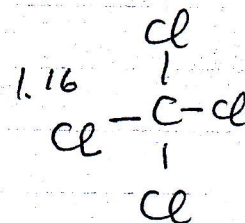 Cl
1.16
Cl - C - Cl
Cl